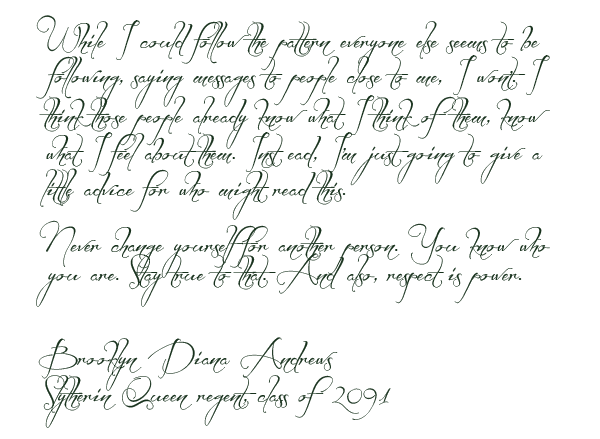 While I could follow the pattern everyone else seems to be
following, saying messages to people close to me, I won't. I
think those people already know what I think of them, know
what I feel about them. Instead, I'm just going to give a
little advice for who might read this.
Never change yourself for another person. You know who
you are. Stay true to that. And also, respect is power.
Brooklyn Diana Andrews
Slytherin Queen regent, class of 2091